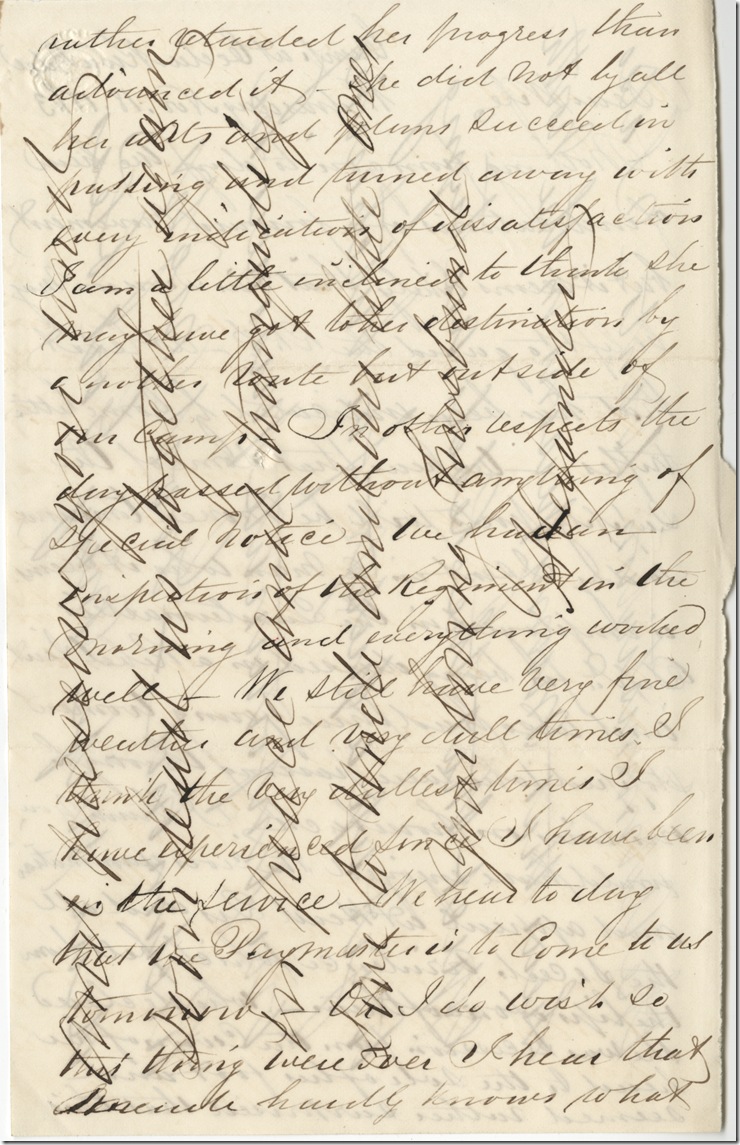 rather retarded her progress than
advanced it – she did not by all
her arts and plans succeed in
passing and turned away with
every indication of dissatisfaction
I am a little inclined to think she
may have got to her destination by
another route but outside of
our Camp – In other respects the
day passed without anything of
special notice – We had an
inspection of the Regiment in the
morning and everything worked
well – We still have very fine
weather and very dull times. I
think the very dullest times I
have experienced since I have been
in the service – We hear to day
that the Paymaster is to Come to us
tomorrow – Oh I do wish so
this thing were over I hear that
hardly knows what
pleasure you have
your
peace and
to and me
your loving husband